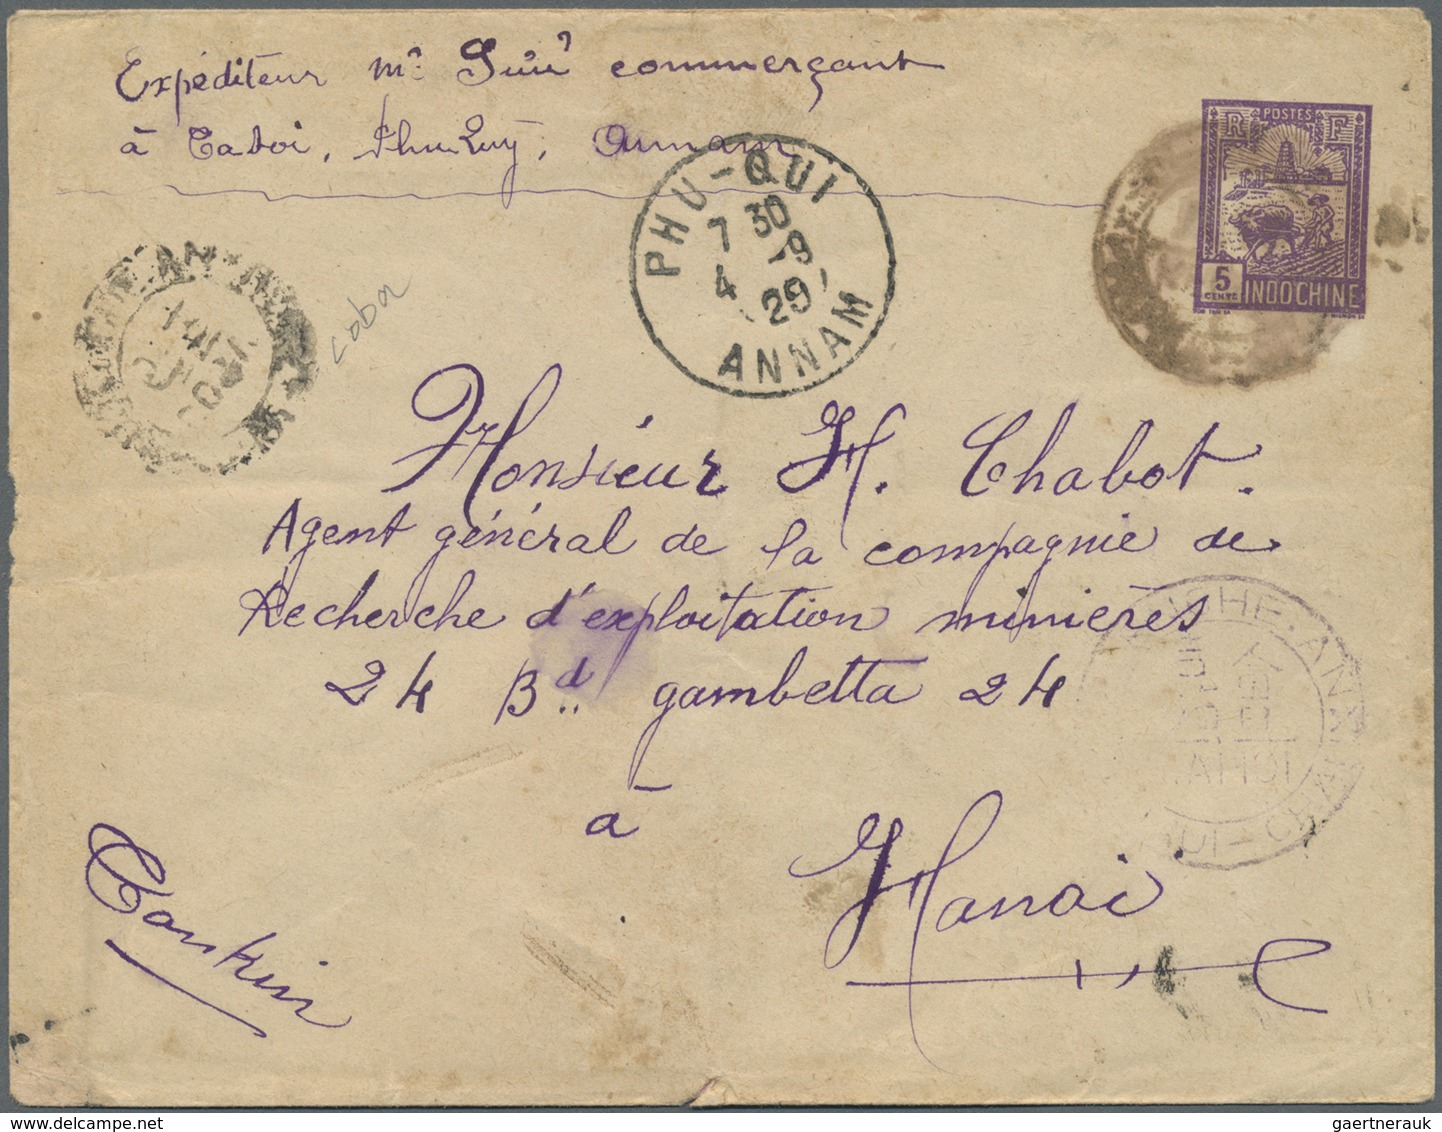 Expéditeur Mr commerçant
à Taboi, Phu Quy, Annam
R POSTES F
5
CENTS
INDOCHINE
PHU-QUI
7 30
4 -9
29
ANNAM
Monsieur H. Chabot.
Agent général de la compagnie de
Recherche d'exploitation minières
24 Bd. gambetta 24
à
Hanoi
Tonkin
gaertnerauk